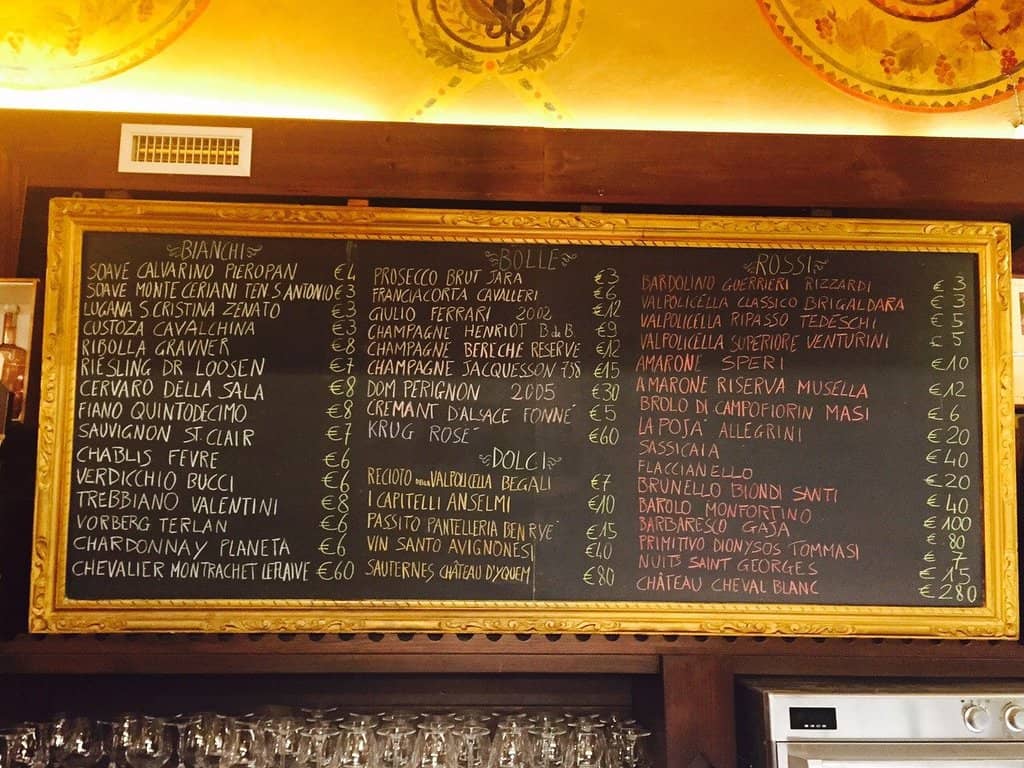 BIANCHI
SOAVE CALVARINO PIEROPAN €4
SOAVE MONTE CERIANI TEN S ANTONIO €3
LUGANA S CRISTINA ZENATO €3
CUSTOZA CAVALCHINA €3
RIBOLLA GRAVNER €8
RIESLING DR LOOSEN €7
CERVARO DELLA SALA €8
FIANO QUINTODECIMO €8
SAUVIGNON ST CLAIR €7
CHABLIS FEVRE €6
VERDICCHIO BUCCI €6
TREBBIANO VALENTINI €8
VORBERG TERLAN €6
CHARDONNAY PLANETA €6
CHEVALIER MONTRACHET LEFLAIVE €60
BOLLE
PROSECCO BRUT JARA €3
FRANCIACORTA CAVALLERI €6
GIULIO FERRARI 2002 €12
CHAMPAGNE HENRIOT B de B €9
CHAMPAGNE BERECHE RESERVE €12
CHAMPAGNE JACQUESSON 738 €15
DOM PERIGNON 2005 €30
CREMANT D'ALSACE FONNÉ €5
KRUG ROSÉ €60
DOLCI
RECIOTO DELLA VALPOLICELLA BEGALI €7
I CAPITELLI ANSELMI €10
PASSITO PANTELLERIA BEN RYÉ €15
VIN SANTO AVIGNONESI €40
SAUTERNES CHÂTEAU D'YQUEM €80
ROSSI
BARDOLINO GUERRIERI RIZZARDI €3
VALPOLICELLA CLASSICO BRIGALDARA €3
VALPOLICELLA RIPASSO TEDESCHI €5
VALPOLICELLA SUPERIORE VENTURINI €5
AMARONE SPERI €10
AMARONE RISERVA MUSELLA €12
BROLO DI CAMPOFIORIN MASI €6
LA POJA ALLEGRINI €20
SASSICAIA €40
FLACCIANELLO €20
BRUNELLO BIONDI SANTI €40
BAROLO MONFORTINO €100
BARBARESCO GAJA €80
PRIMITIVO DIONYSOS TOMMASI €7
NUITS SAINT GEORGES €15
CHÂTEAU CHEVAL BLANC €280